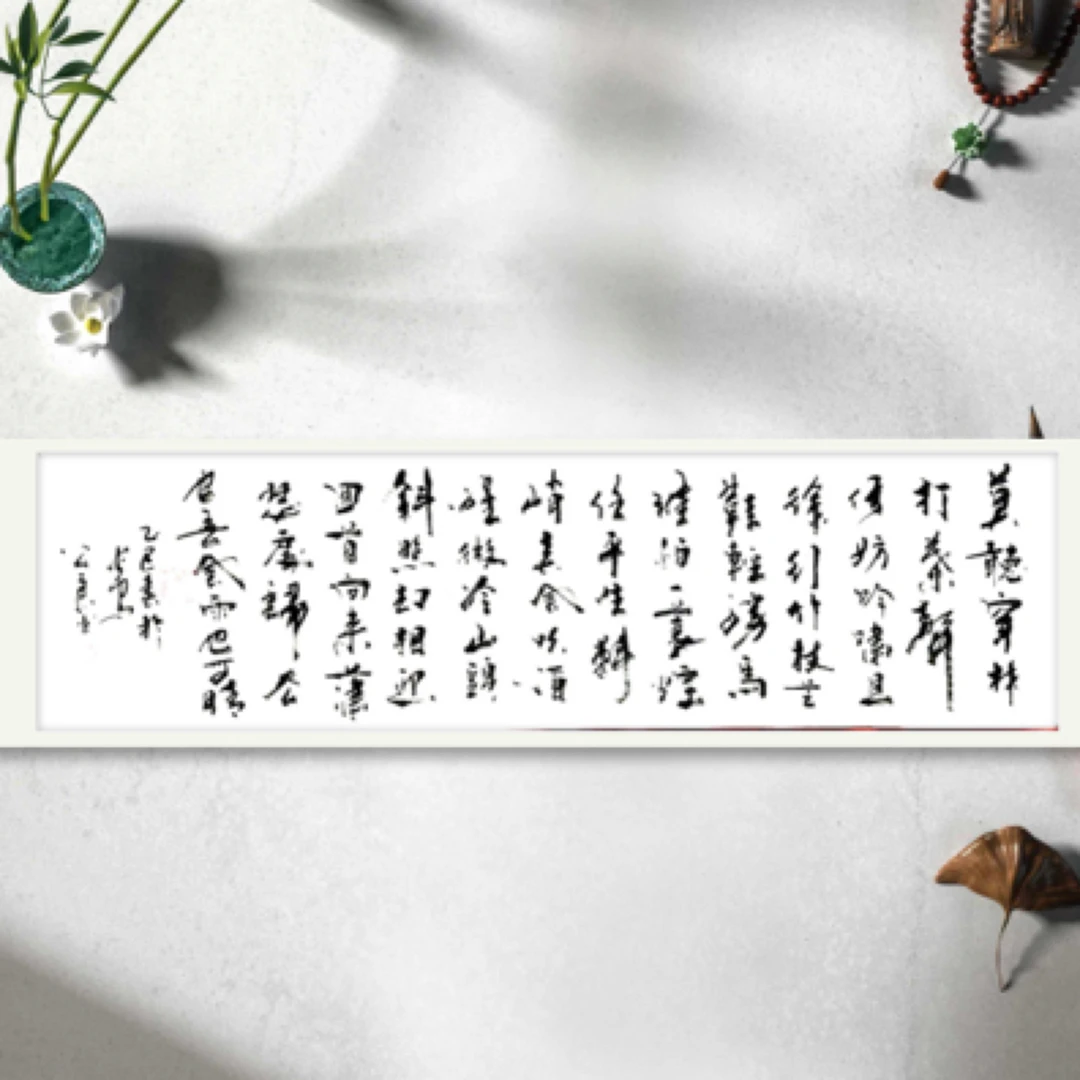 莫聽穿林
打葉聲
何妨吟嘯且
徐行竹杖芒
鞋輕勝馬
誰怕一蓑煙
任平生料
峭春風吹酒
醒微冷山頭
斜照却相迎
回首向来蕭
瑟處歸去
也無風雨也無晴
乙巳春於